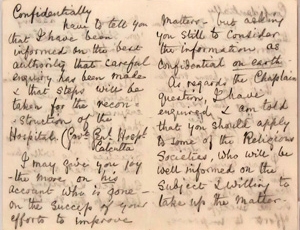 Confidentially
have to tell you
that I have been
informed on the best
authority that careful
enquiry has been made
& that steps will be
taken for the recon-
-struction of the
Hospital (Pres. Genl. Hospl.
Calcutta
I may give you joy
- the more on his
account who is gone -
on the success of your
efforts to improve
matters - but asking
you still to consider
the information as
Confidential on earth
As regards the Chaplain
question, I have
enquired & am told
that you should apply
to some of the Religious
Societies, who will be
well informed on the
Subject & willing to
take up the matter-